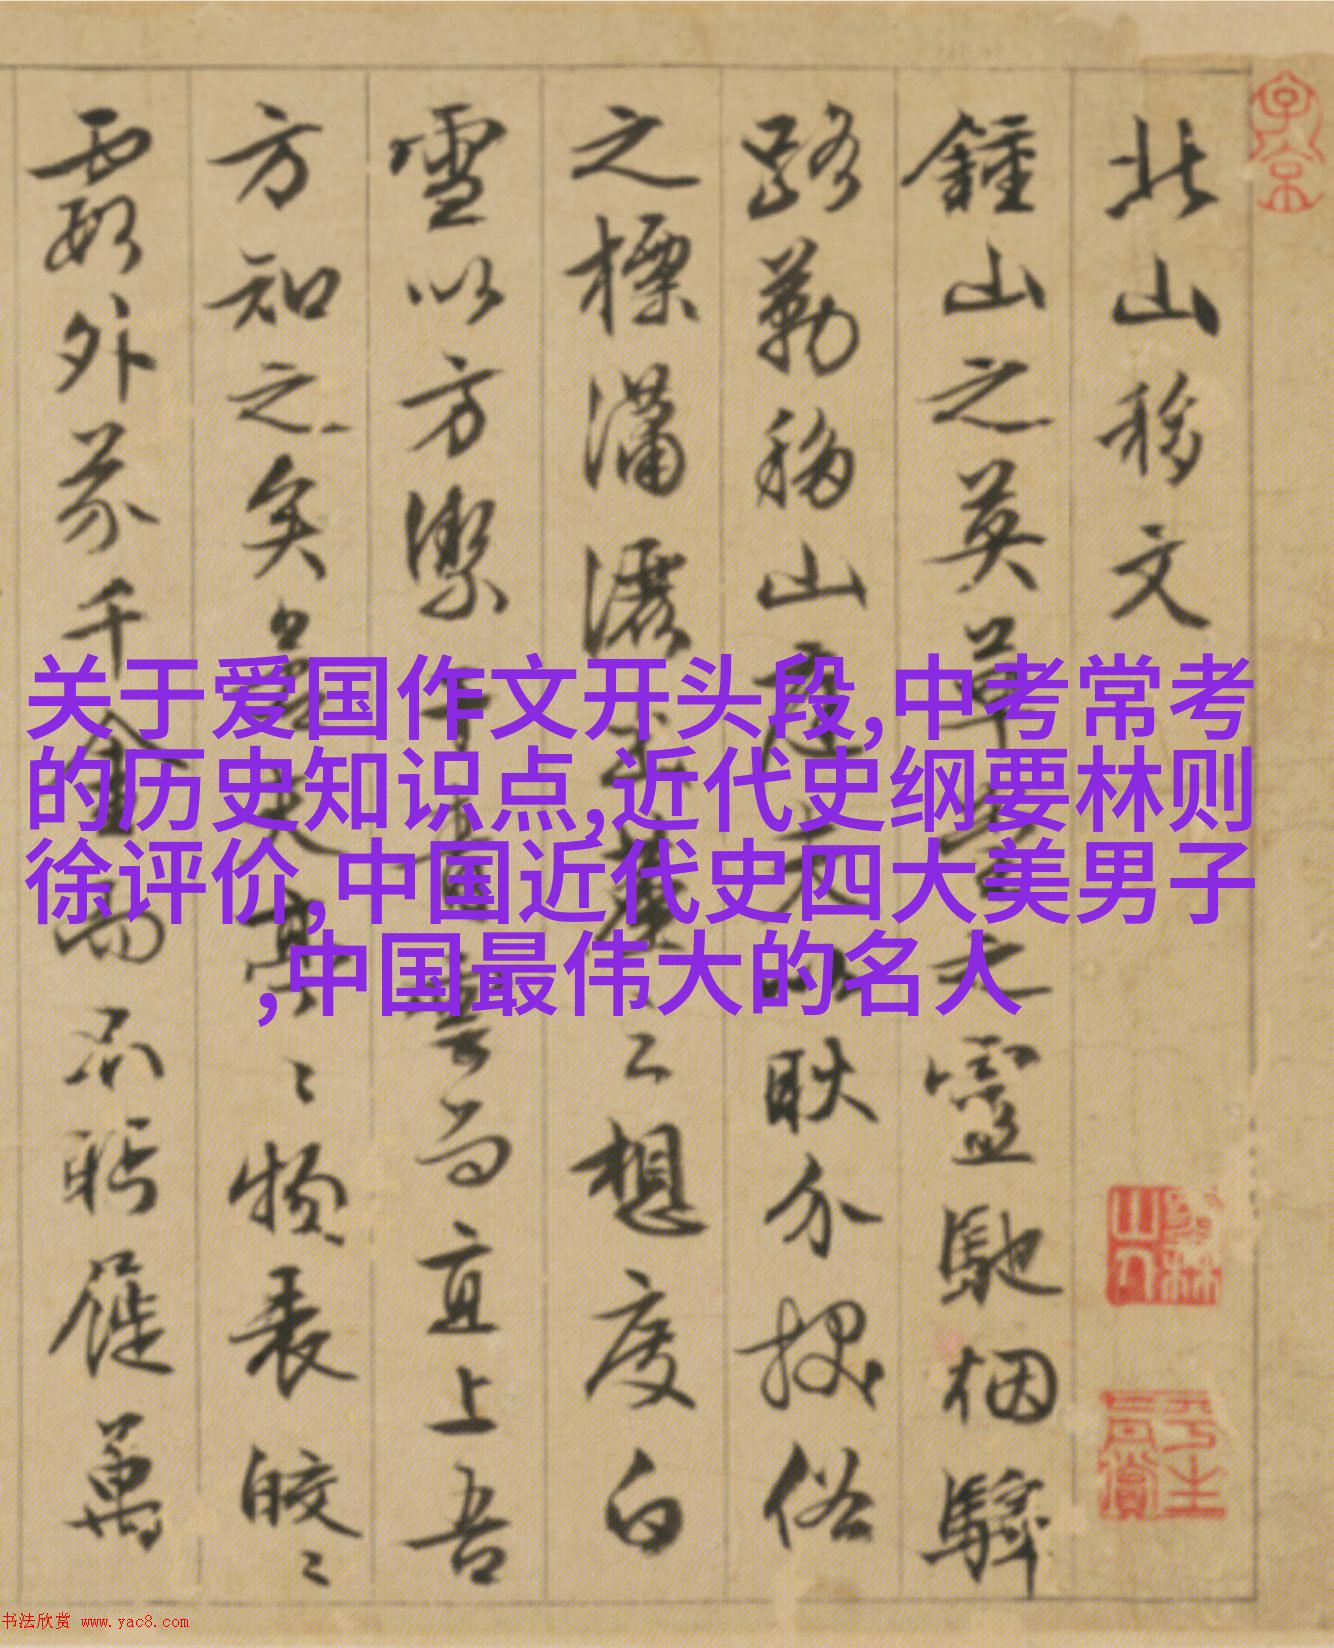 北山移文
鍾山之英草堂之靈馳烟驛
路勒移山庭夫以耿介拔俗
之標瀟灑出塵之想度白
雪以方潔干青雲而直上吾
方知之矣若其亭〻物表皎〻
霞外芥千金而不眄屣萬
关于爱国作文开头段,中考常考
的历史知识点,近代史纲要林则
徐评价,中国近代史四大美男子
,中国最伟大的名人
子京
墨林山人
平生真賞
书法欣赏 www.yac8.com